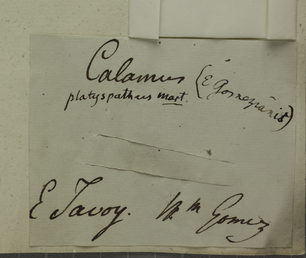 Calamus (E Gomezianis)
platyspathus mart.
E Tavoy. Wm Gomez